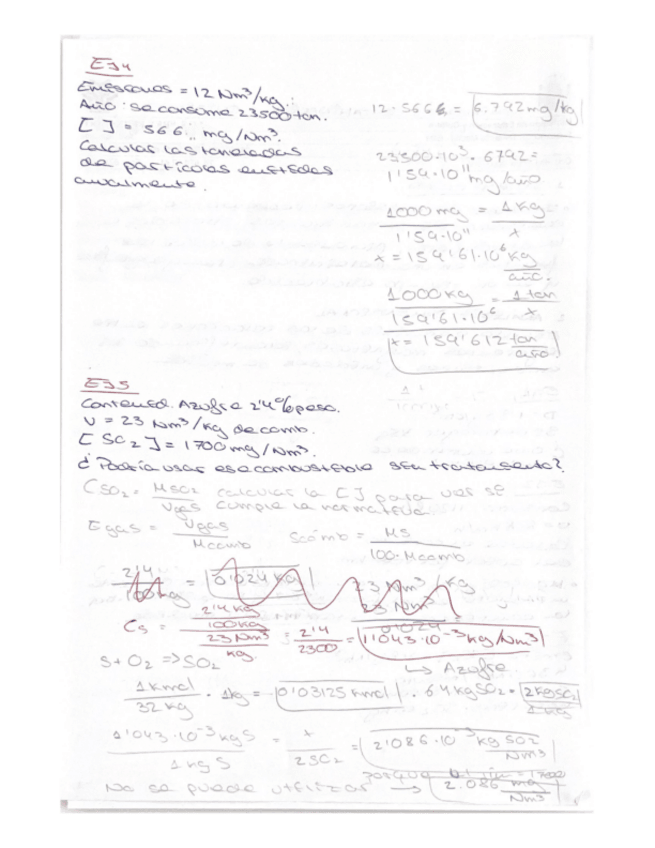 EJ4
Emisiones = 12 Nm³/kg.
Año: se consume 23500 ton.
[ ] = 566 mg/Nm³.
Calcular las toneladas
de partículas emitidas
anualmente.
12 · 566 = 6.792 mg/kg
23500·10³ · 6792 =
1'59·10¹¹ mg/año
1000 mg = 1 kg
1'59·10¹¹ x
x = 159'61·10⁶ kg
año.
1000 kg = 1 ton
159'61·10⁶ x
x = 159'612 ton
año
EJ5
Contenid. Azufre 2'4% peso.
V = 23 Nm³/kg de comb.
[SO₂] = 1700 mg/Nm³.
¿Podría usar ese combustible sin tratamiento?
CSO₂ = MSO₂ calcular la [ ] para ver si
Vgas cumple la normativa.
Egas = Vgas
Mcomb
Scomb = MS
100·Mcomb
2'4 = 0'024 kg
100 kg
23 Nm³/kg
23 Nm³ =
0'024
Cs = 2'4 kg
100 kg
23 Nm³
kg.
= 2'4 = 1'043·10⁻³ kg/Nm³
2300
↳ Azufre
S + O₂ => SO₂
1 kmol · 1kg = 0'03125 kmol · 64 kg SO₂ = 2 kg SO₂
32 kg 1 kg
1'043·10⁻³ kg S = x = 2'086·10⁻³ kg SO₂
1 kg S 2 SO₂ Nm³
No se puede utilizar porque → 2.086 mg
Nm³